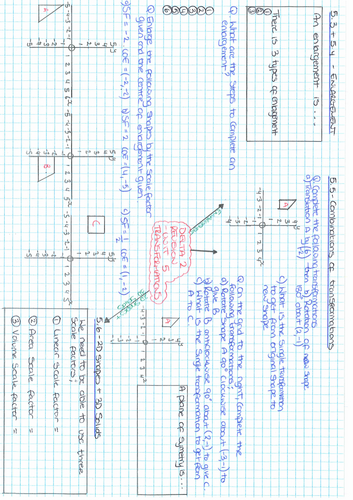 5.3 + 5.4 - ENLARGEMENT
An enlargement is ...
There is 3 types of enlargement
①
②
③
Q) What are the steps to complete an
enlargement?
①
②
③
④
⑤
⑥
Q) Enlarge the following shapes by the scale factor
given and the centre of enlargement given
a) SF = -2, COE = (-2,-2)
b) SF = 2, COE = (4,-5)
c) SF = 1/2 COE = (1,-2)
A
B
C
5.5 - Combinations of transformations
Q) Complete the following transformations
a) Translation A by
then b) Rotation of new shape
180° about
c) What is the single transformation
to get from original shape to
new shape
DELTA 2
REVISION
UNIT 5
TRANSFORMATIONS
Q) On the grid to the right, complete the
following transformations;
a) Rotate Shape A 90° clockwise about (-3,-1) to
give B
b) Rotate B anticlockwise 90° about (2,-1) to give C
c) What is the single transformation to get from
A to C
A
5.6 - 2D shapes + 3D Solids
We need to be able to use three
scale factors;
① Linear scale factor =
② Area scale factor =
③ Volume scale factor =
A plane of symmetry is...